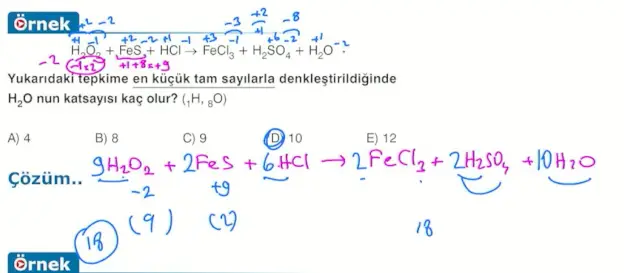 Örnek
+2 -2 -3 +2 -8
+1 -1 +2 -2 +1 -1 +3 -1 +1 +6 -2 +1 -2
H₂O₂ + FeS + HCl → FeCl₃ + H₂SO₄ + H₂O
-2 -1x2 +1+8=+9
Yukarıdaki tepkime en küçük tam sayılarla denkleştirildiğinde
H₂O nun katsayısı kaç olur? (₁H, ₈O)
A) 4 B) 8 C) 9 D) 10 E) 12
Çözüm.. 9H₂O₂ + 2FeS + 6HCl → 2FeCl₃ + 2H₂SO₄ + 10H₂O
-2 +9
18 (9) (2) 18
Örnek